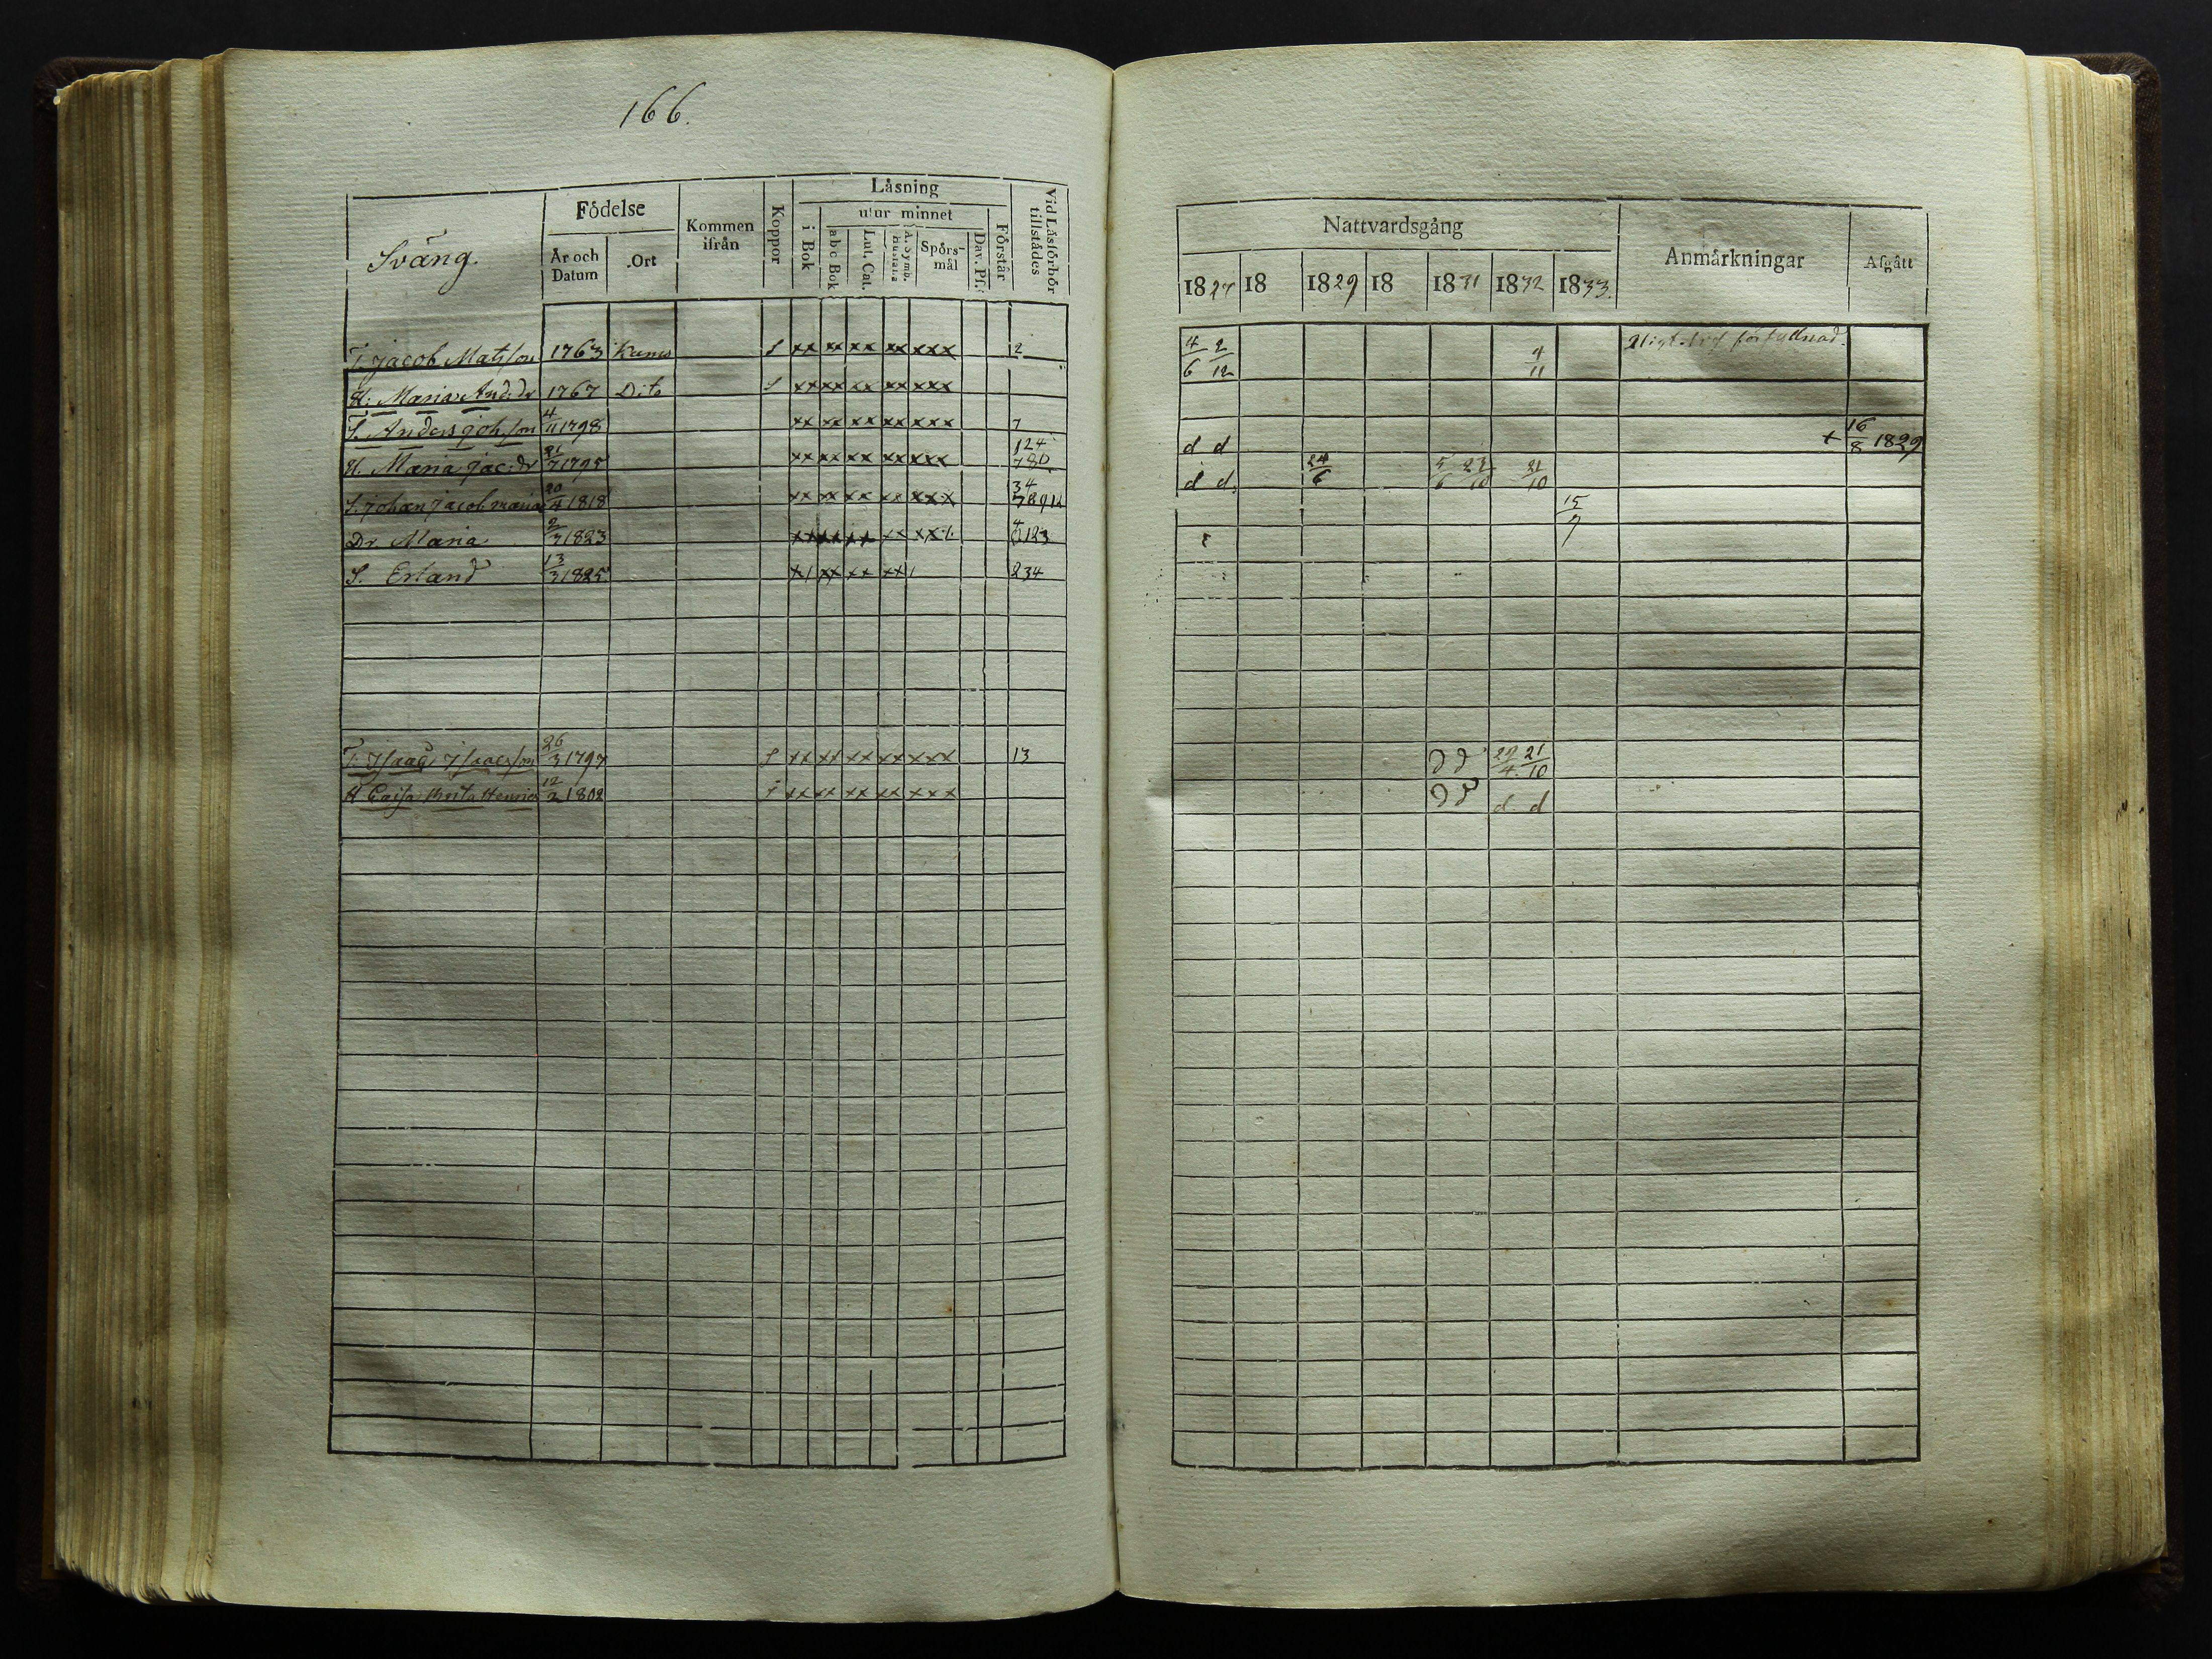 166.
Sväng.
Födelse
År och Datum
Ort
Kommen ifrån
Koppor
Låsning
i Bok
utur minnet
abc Bok
Lut. Cat.
A. Symb. Hustafla
Spörsmål
Dav. Ps.
Förstår
Vid Låsförhör tillstådes
T. Jacob Matsson 1763 Kumo S xx xx xx xx xxx 2
H. Maria And:dr 1767 Dito S xx xx xx xx xxx
S. Anders Johsson 4/11 1798 xx xx xx xx xxx 7
H. Maria Jac:dr 21/7 1795 xx xx xx xx xxx 124
S. Johan Jacob 20/4 1818 xx xx xx xx xxx 34
Dr. Maria 2/7 1823 xx xx xx xx 4
S. Erland 13/3 1825 x/ xx xx xx/ 234
T. Isaac Isacsson 26/3 1797 S xx xx xx xx xxx 13
H Caisa Brita Henric 12/2 1802 xx xx xx xx xxx
Nattvardsgång
Anmårkningar
Afgått
1827 18 1829 18 1831 1832 1833.
4/6 2/12 4/11 förfyllnad.
d d + 16/8 1829
d d. 24/6 21/10
15/7
d d 21/10
d d d d